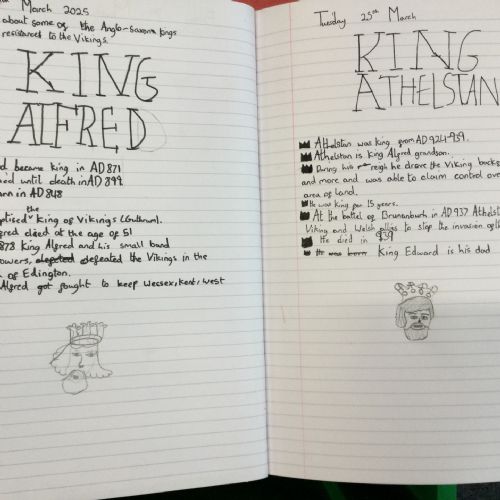 March 2025
about some of the Anglo-Saxons kings
resistanced to the Vikings.
KING
AlFRED
became king in AD 871
until death in AD 899
in AD 848
the
King of Vikings (Guthrum).
died at the age of 51
878 King Alfred and his small band
defeated the Vikings in the
of Edington.
Alfred got fought to keep Wessex, Kent, West
Tuesday 25th March
KING
ATHELSTAN
Athelstan was king from AD 924-939.
Athelstan is King Alfred grandson.
During his reigh he drove the Viking back
and more and was able to claim control over
area of land.
He was king for 15 years.
At the battel of Brunanburh in AD 937 Athelst
Viking and Welsh allies to stop the invasion of th
He died in 939
He was born King Edward is his dad